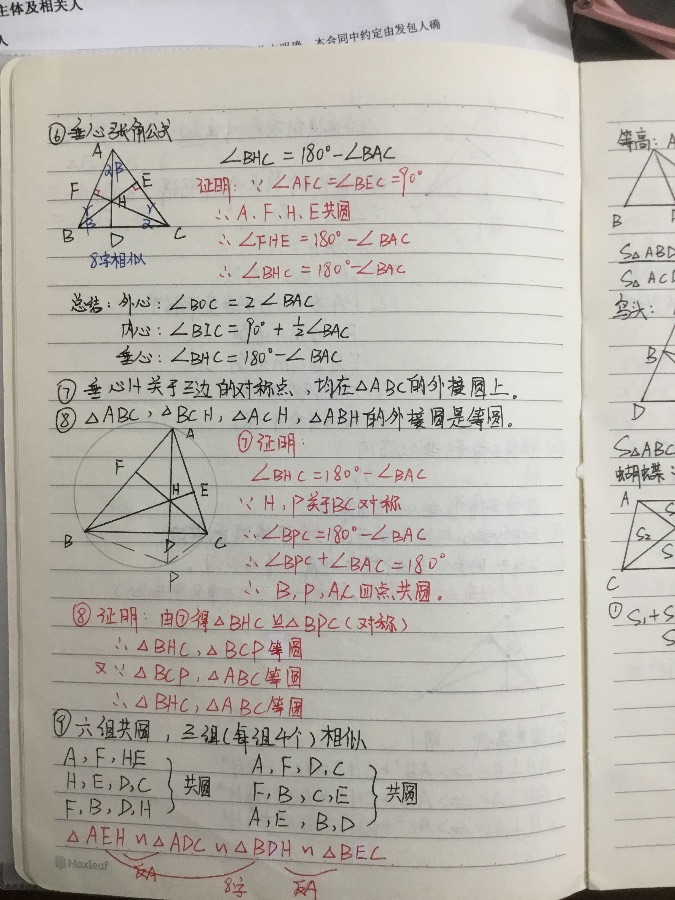 主体及相关人
人
本合同中约定由发包人确
⑥垂心张角公式
A
F
E
H
B
D
C
α
β
γ
γ
β
α
8字相似
∠BHC = 180° - ∠BAC
证明: ∵ ∠AFC = ∠BEC = 90°
∴ A、F、H、E共圆
∴ ∠FHE = 180° - ∠BAC
∴ ∠BHC = 180° - ∠BAC
总结: 外心: ∠BOC = 2∠BAC
内心: ∠BIC = 90° + ½∠BAC
垂心: ∠BHC = 180° - ∠BAC
⑦ 垂心H关于三边的对称点,均在△ABC的外接圆上。
⑧ △ABC, △BCH, △ACH, △ABH的外接圆是等圆。
A
F
H
E
B
D
C
P
⑦证明:
∠BHC = 180° - ∠BAC
∵ H,P关于BC对称
∴ ∠BPC = 180° - ∠BAC
∴ ∠BPC + ∠BAC = 180°
∴ B, P, A, C四点共圆。
⑧ 证明: 由⑦得△BHC ≌ △BPC(对称)
∴ △BHC, △BCP等圆
又∵ △BCP, △ABC等圆
∴ △BHC, △ABC等圆
⑨ 六组共圆, 三组(每组4个)相似
A, F, HE
H, E, D, C
F, B, D, H
共圆
A, F, D, C
F, B, C, E
A, E, B, D
共圆
△AEH ∽ △ADC ∽ △BDH ∽ △BEC
反A
8字
反A
Maxleaf
等高: A
B
S△ABD
S△ACD
鸟头:
B
D
S△ABC
蝴蝶:
A
S₂
C
① S₁+S
S